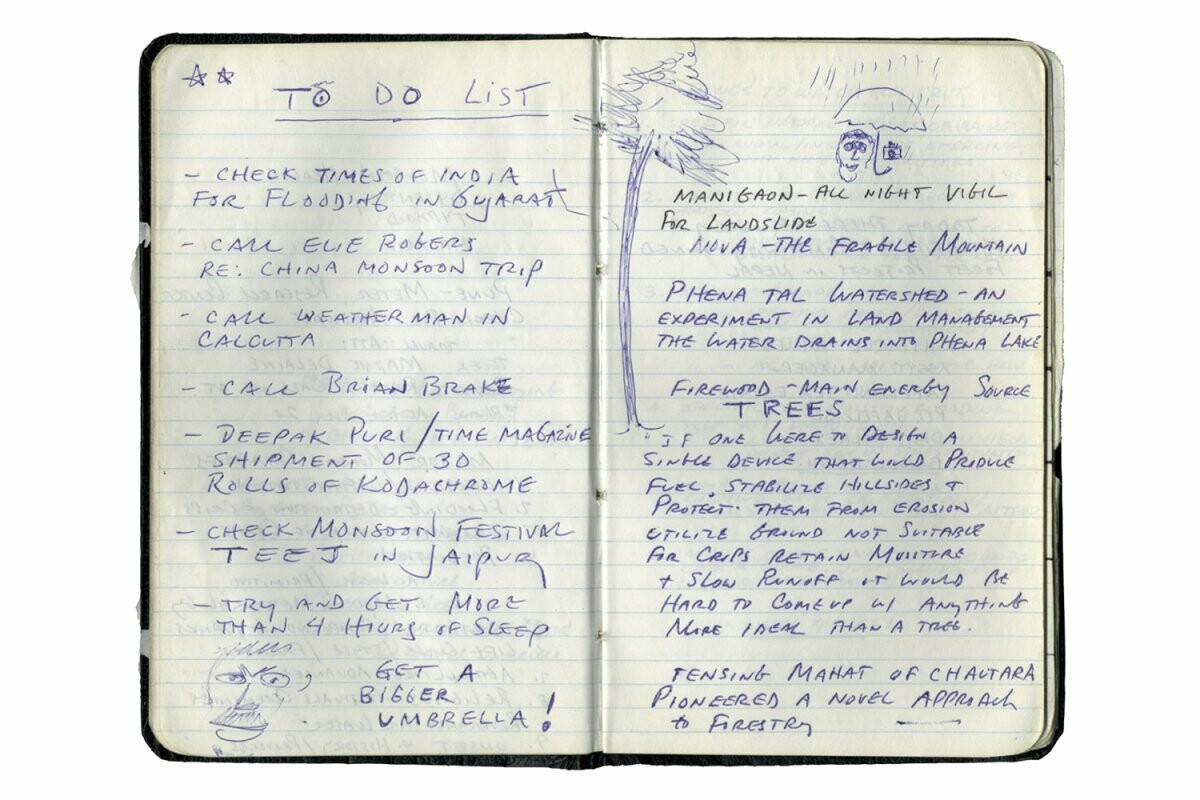 TO DO LIST
- CHECK TIMES OF INDIA
FOR FLOODING IN GUJARAT
- CALL ELIE ROGERS
RE: CHINA MONSOON TRIP
- CALL WEATHERMAN IN
CALCUTTA
- CALL BRIAN BRAKE
- DEEPAK PURI/TIME MAGAZINE
SHIPMENT OF 30
ROLLS OF KODACHROME
- CHECK MONSOON FESTIVAL
TEEJ IN JAIPUR
- TRY AND GET MORE
THAN 4 HOURS OF SLEEP
GET A
BIGGER
UMBRELLA!
MANIGAON-ALL NIGHT VIGIL
FOR LANDSLIDE
NOVA -THE FRAGILE MOUNTAIN
PHENA TAL WATERSHED - AN
EXPERIMENT IN LAND MANAGEMENT
THE WATER DRAINS INTO PHENA LAKE
FIREWOOD -MAIN ENERGY SOURCE
TREES
"IF ONE WERE TO DESIGN A
SINGLE DEVICE THAT WOULD PRODUCE
FUEL, STABILIZE HILLSIDES +
PROTECT. THEM FROM EROSION
UTILIZE GROUND NOT SUITABLE
FOR CROPS RETAIN MOISTURE
+ SLOW RUNOFF IT WOULD BE
HARD TO COME UP W/ ANYTHING
MORE IDEAL THAN A TREE.
TENSING MAHAT OF CHAUTARA
PIONEERED A NOVEL APPROACH
to FORESTRY